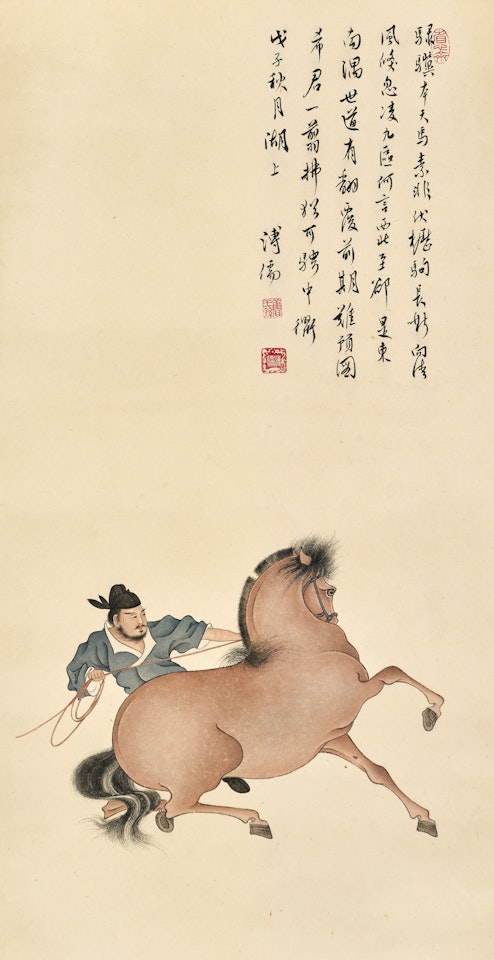 騄驥本天馬素非伏櫪駒長嘶向清
風倐忽凌九區何言西北至卻是東
南隅世道有翻覆前期難預圖
希君一翦拂猶可騁中衢
戊子秋月湖上
溥儒